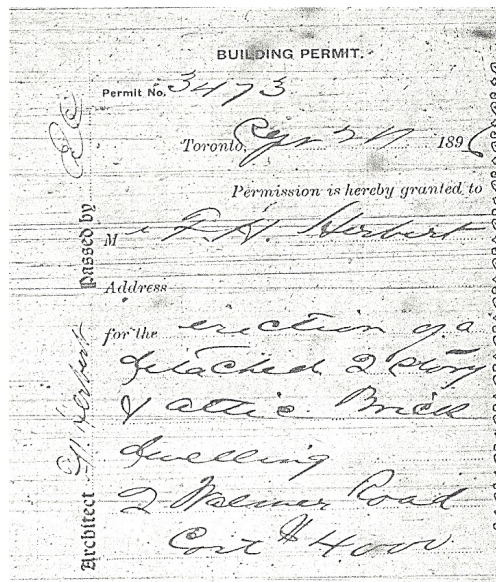 BUILDING PERMIT.
Permit No. 3473
Toronto, 189
Permission is hereby granted to
M F. H. Herbert
Address
for the erection of a
detached 2 story
& attic Brick
dwelling
2 Walmer Road
Cost $4000
Passed by
Architect F. H. Herbert